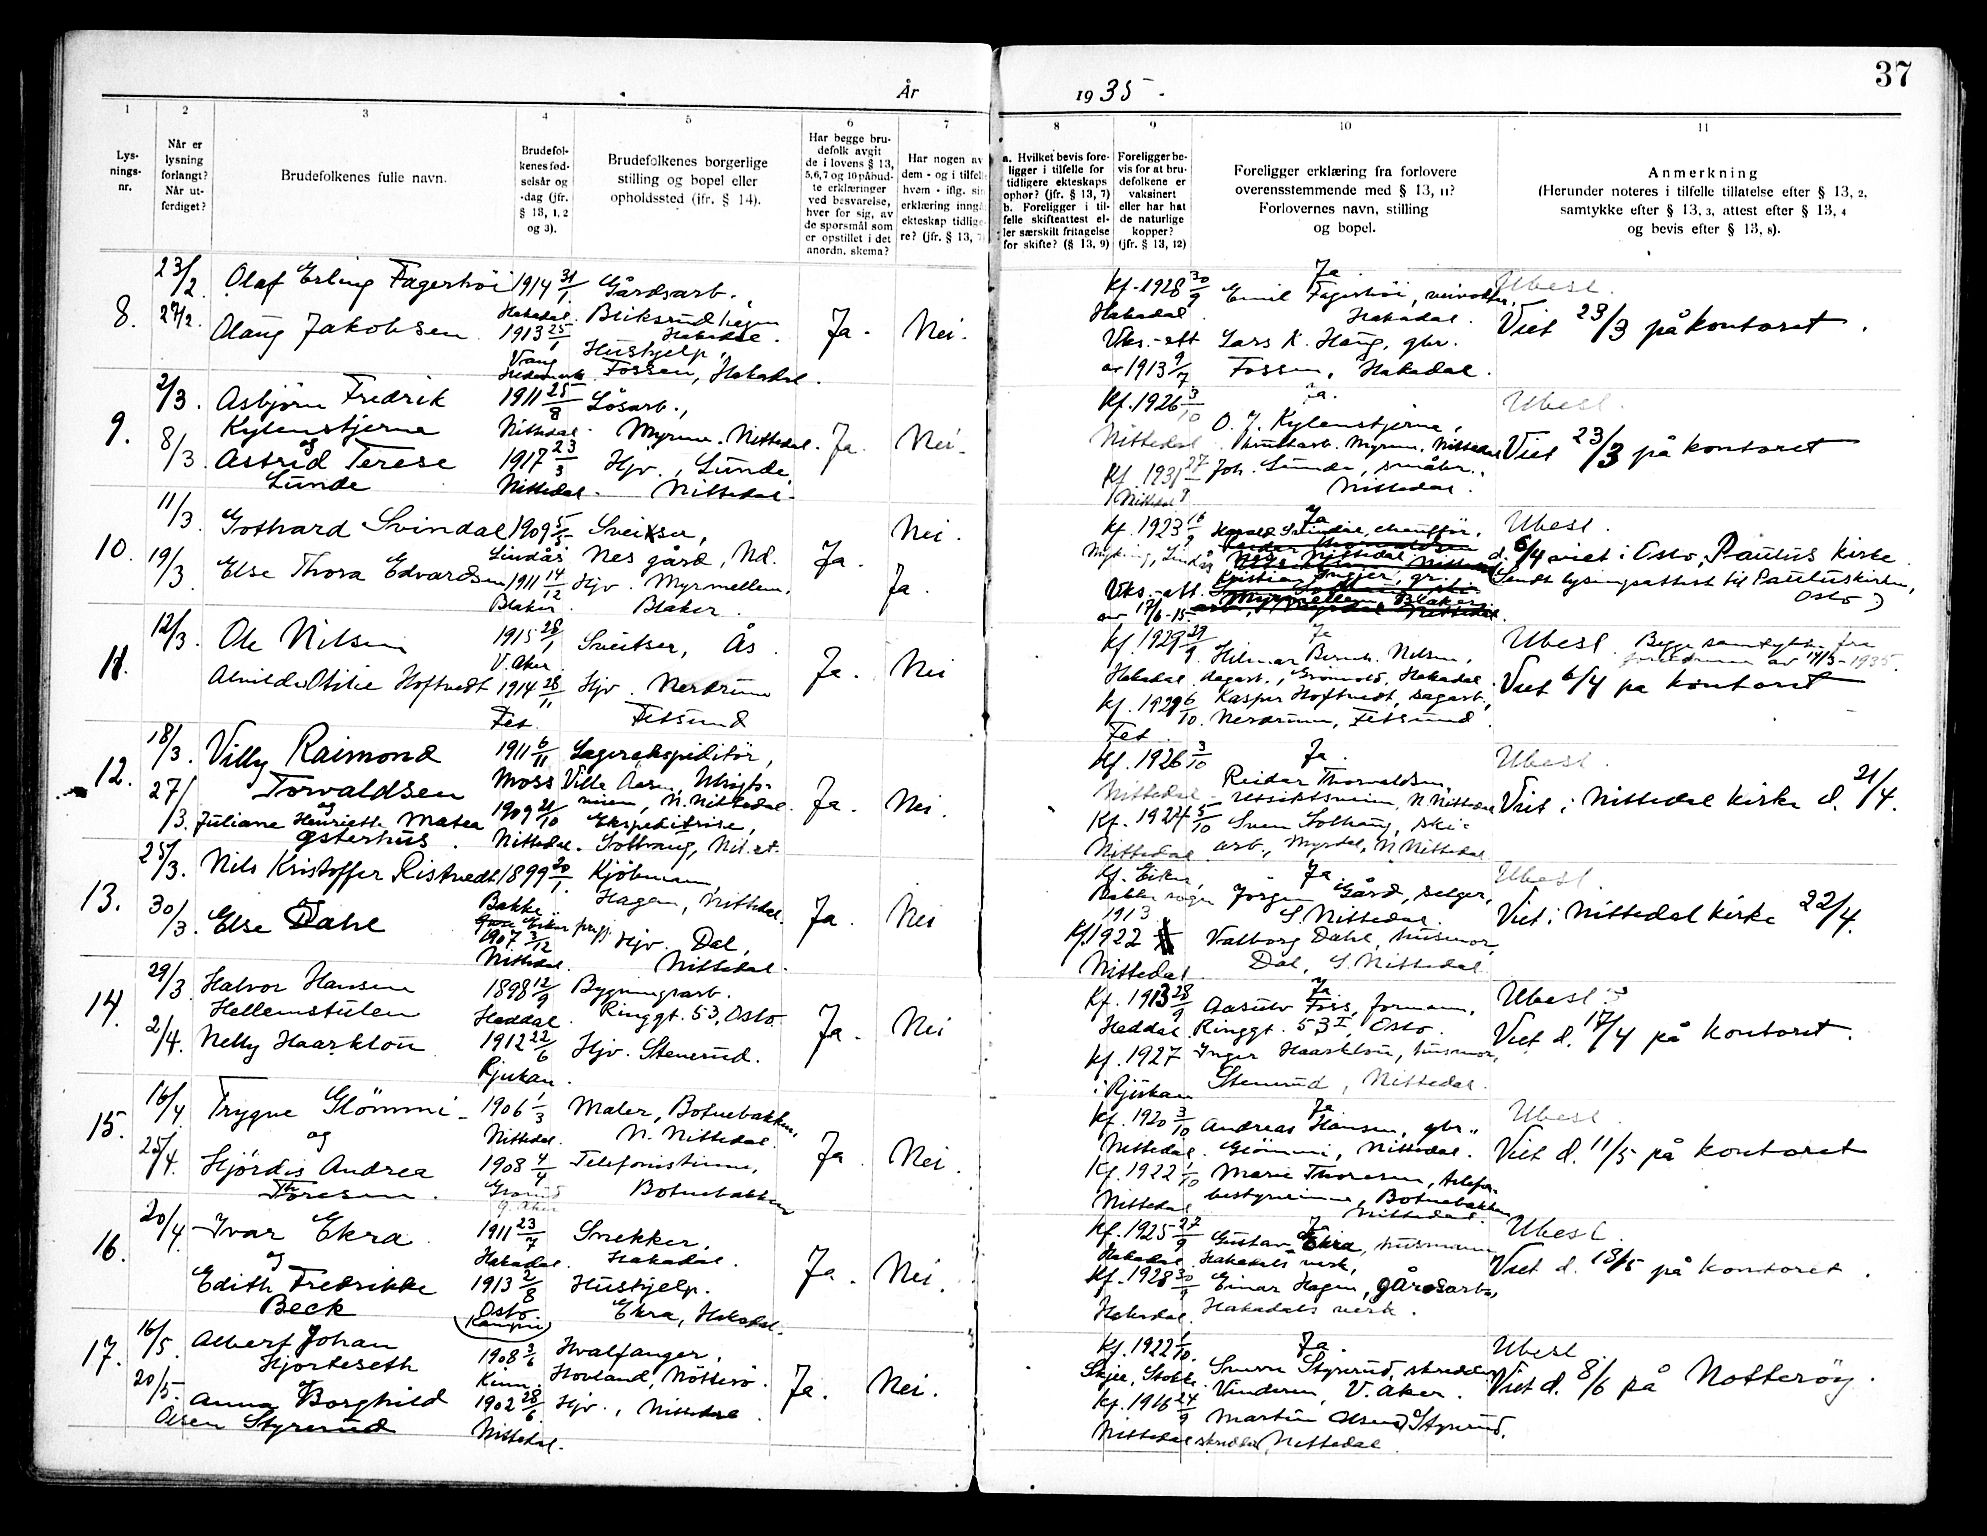 37
År 1935.
1 2 3 4 5 6 7 8 9 10 11
Lysningsnr.
Når er lysning forlangt? Når utferdiget?
Brudefolkenes fulle navn.
Brudefolkenes fødselsår og -dag (jfr. § 13, 1, 2 og 3).
Brudefolkenes borgerlige stilling og bopel eller opholdssted (jfr. § 14).
Har begge brudefolk avgit de i lovens § 13, 5,6,7 og 10 påbudte erklæringer ved besvarelse, hver for sig, av de spørsmål som er opstillet i det anordn. skema?
Har nogen av dem - og i tilfelle hvem - iflg. sin erklæring inngå ekteskap tidligere? (jfr. § 13, 7)
a. Hvilket bevis foreligger i tilfelle for tidligere ekteskaps ophør? (jfr. § 13, 7)
b. Foreligger i tilfelle skifteattest eller særskilt fritagelse for skifte? (§ 13, 9)
Foreligger bevis for at brudefolkene er vaksinert eller har hat de naturlige kopper? (jfr. § 13, 12)
Foreligger erklæring fra forlovere overensstemmende med § 13, 11? Forlovernes navn, stilling og bopel.
Anmerkning
(Herunder noteres i tilfelle tillatelse efter § 13, 2, samtykke efter § 13, 3, attest efter § 13, 4 og bevis efter § 13, 8).
8. 23/2 27/2.
Olaf Erling Fagerhøi 1914 31/1 Hakadal. Gårdsarb., Bliksrudhagen Hakadal.
Olaug Jakobsen 1913 25/1 Vang Hedemark. Hushjelp, Fossen, Hakadal.
Ja. Nei.
Kf. 1928 30/9 Hakadal. Vks.-att. av 1913 9/7
Ja. Emil Fagerhøi, Hakadal. Lars K. Haug, gbr. Fossen, Hakadal.
Ubesl. Viet 23/3 på kontoret.
9. 2/3. 8/3.
Asbjørn Fredrik Kylenstjerna 1911 25/8 Nittedal. Løsarb., Myrun. Nittedal.
og
Astrid Terese Lunde 1917 23/3 Nittedal. Hjv., Lunde, Nittedal.
Ja. Nei.
Kf. 1926 3/10 Nittedal Kf. 1931 27/9 Nittedal
Ja. O. J. Kylenstjerna, Nittedal Joh. Lunde, småbr., Nittedal.
Ubesl. Viet 23/3 på kontoret
10. 11/3. 19/3
Gothard Svindal 1909 5/5 Lindås Sveitser, Nes gård, Nd.
Else Thora Edvardsen 1911 14/12 Blaker. Hjv. Myrmellem, Blaker.
Ja. Nei. Ja.
Kf. 1923 Lindås Vks.-att. av 17/6-15.
Ja Harald Svindal, chauffør, Kristian
Ubesl. d. 6/4 viet i Oslo, Paulus kirke (Sendt lysningsattest til Pauluskirken, Oslo)
11. 12/3.
Ole Nilsen 1915 28/1 V. Aker. Sveitser, Ås.
Alvilde Otilie Hoftvedt 1914 28/11 Fet. Hjv. Nerdrum Fetsund
Ja. Nei
Kf. 1929 29/9 Hakadal Kf. 1929 6/10 Fet.
Ja Hilmar Bernh. Nilsen, Hakadal. Kasper Hoftvedt, sagarb., Nerdrum, Fetsund.
Ubesl. Begge samtykke fra foreldrene av 14/3-1935. Viet 6/4 på kontoret
12. 18/3. 27/3.
Villy Raimond Torvaldsen 1911 6/11 Moss Lagerekspeditør, Villa Aasen, N. Nittedal.
og
Juliane Henriette Matea Østerhus. 1909 21/10 Nittedal. Ekspeditrise, Solhaug, Nit.
Ja. Nei.
Kf. 1926 3/10 Nittedal. Kf. 1924 5/10 Nittedal
Ja. Reidar Thorvaldsen, N. Nittedal Sven Solhaug, skiarb., Myrdal, N. Nittedal
Ubesl. Viet i Nittedal kirke d. 21/4.
13. 25/3. 30/3
Nils Kristoffer Ristvedt 1899 20/1 Bakke Kjøbmann, Hagen, Nittedal.
og
Else Dahl 1907 3/12 Nittedal. Hjv. Dal, Nittedal.
Ja. Nei
Kf. Eiker, Bakke sogn 1913 Kf. 1922 Nittedal
Ja Jørgen Gård, selger, S. Nittedal. Valborg Dahl, husmor, Dal, S. Nittedal
Ubesl. Viet i Nittedal kirke 22/4.
14. 29/3 2/4.
Halvor Hansen Hellemstulen 1898 12/9 Heddal. Bygningsarb. Ringgt. 53, Oslo.
Nelly Haarklou 1912 22/6 Rjukan. Hjv. Stenerud.
Ja. Nei
Kf. 1913 28/9 Heddal. Kf. 1927 i Rjukan
Ja Aasulv Foss, formann, Ringgt. 53 I, Oslo. Inger Haarklou, husmor, Stenerud, Nittedal.
Ubesl. Viet d. 17/4 på kontoret.
15. 16/4. 25/4.
Trygve Glømmi 1906 1/3 Nittedal. Maler, Botnebakken, N. Nittedal.
og
Hjørdis Andrea Thoresen. 1908 4/4 Telefonistinne, Botnebakken
Ja. Nei.
Kf. 1920 3/10 Nittedal. Kf. 1922 1/10 Nittedal
Ja Andreas Hansen, gbr., Glømmi, Nittedal. Marie Thoresen, bestyrerinne, Botnebakken Nittedal.
Ubesl. Viet d. 11/5 på kontoret
16. 20/4.
Ivar Ekra 1911 23/7 Hakadal. Snekker, Hakadal.
og
Edith Fredrikke Beck 1913 2/8 Oslo Kampen Hushjelp. Ekra, Hakadal.
Ja. Nei.
Kf. 1925 27/9 Hakadal Kf. 1928 30/9 Hakadal.
Ja Gustav Ekra, husmann Hakadals verk, Einar Hagen, gårdsarb., Hakadals verk.
Ubesl. Viet d. 18/5 på kontoret.
17. 16/5. 20/5.
Albert Johan Hjorteseth 1908 3/6 Kinn. Hvalfanger, Hovland, Nøtterø.
og
Anna Borghild Olsen Styrerud 1902 28/6. Nittedal. Hjv., Nittedal.
Ja. Nei.
Kf. 1922 1/10. Skjee, Stokke. Kf. 1916 24/9 Nittedal
Ja. Styrerud, skredder Vinderen, V. Aker. Martin Olsen Styrerud, skredder, Nittedal.
Ubesl. Viet d. 8/6 på Nøtterøy.